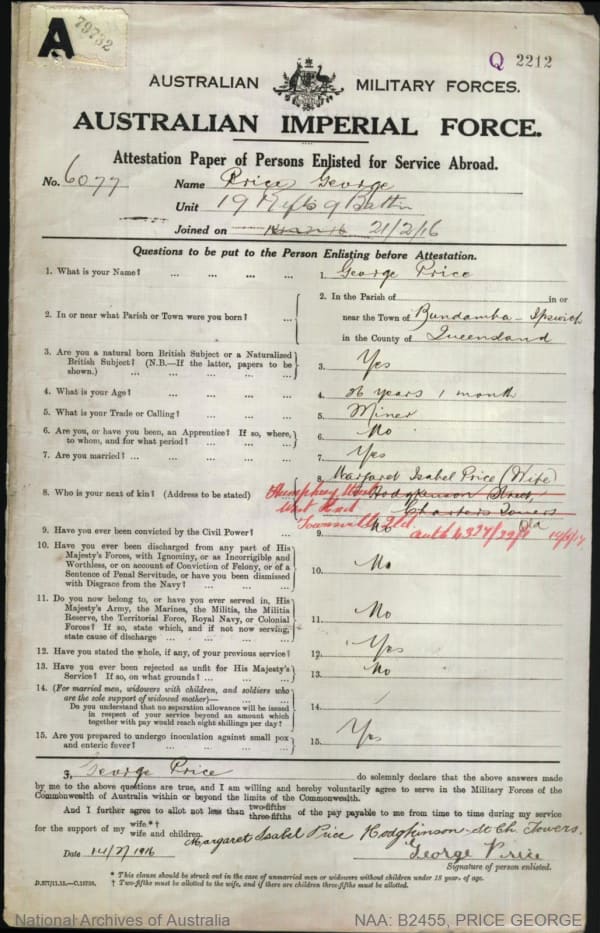 A
79732
Q 2212
AUSTRALIAN MILITARY FORCES.
AUSTRALIAN IMPERIAL FORCE.
Attestation Paper of Persons Enlisted for Service Abroad.
No. 6077 Name Price George
Unit 19 Rfts 9 Battn
Joined on 21/2/16
Questions to be put to the Person Enlisting before Attestation.
1. What is your Name? ... ... ... ... 1. George Price
2. In or near what Parish or Town were you born? ... 2. In the Parish of in or
near the Town of Bundamba - Ipswich
in the County of Queensland
3. Are you a natural born British Subject or a Naturalized
British Subject? (N.B.—If the latter, papers to be
shown.) ... ... ... ... ... 3. Yes
4. What is your Age? ... ... ... ... 4. 26 years 1 month
5. What is your Trade or Calling? ... ... ... 5. Miner
6. Are you, or have you been, an Apprentice? If so, where,
to whom, and for what period? ... ... ... 6. No
7. Are you married? ... ... ... ... ... 7. Yes
8. Who is your next of kin? (Address to be stated) ... 8. Margaret Isabel Price (Wife)
Humphrey Hodgkinson Street,
West End Charters Towers
Townsville Qld. Qld
auth 10/5/17
9. Have you ever been convicted by the Civil Power? ... 9. No
10. Have you ever been discharged from any part of His
Majesty's Forces, with Ignominy, or as Incorrigible and
Worthless, or on account of Conviction of Felony, or of a
Sentence of Penal Servitude, or have you been dismissed
with Disgrace from the Navy? ... ... ... 10. No
11. Do you now belong to, or have you ever served in, His
Majesty's Army, the Marines, the Militia, the Militia
Reserve, the Territorial Force, Royal Navy, or Colonial
Forces? If so, state which, and if not now serving,
state cause of discharge ... ... ... ... 11. No
12. Have you stated the whole, if any, of your previous service? 12. Yes
13. Have you ever been rejected as unfit for His Majesty's
Service? If so, on what grounds? ... ... ... 13. No
14. (For married men, widowers with children, and soldiers who
are the sole support of widowed mother)— ... ...
Do you understand that no separation allowance will be issued
in respect of your service beyond an amount which
together with pay would reach eight shillings per day? 14.
15. Are you prepared to undergo inoculation against small pox
and enteric fever? ... ... ... ... 15. Yes
I, George Price do solemnly declare that the above answers made
by me to the above questions are true, and I am willing and hereby voluntarily agree to serve in the Military Forces of the
Commonwealth of Australia within or beyond the limits of the Commonwealth.
And I further agree to allot not less than two-fifths three-fifths of the pay payable to me from time to time during my service
for the support of my wife.*† wife and children. Margaret Isabel Price Hodgkinson St Ch. Towers.
Date 14/2/1916 George Price
Signature of person enlisted.
* This clause should be struck out in the case of unmarried men or widowers without children under 18 years of age.
† Two-fifths must be allotted to the wife, and if there are children three-fifths must be allotted.
National Archives of Australia
NAA: B2455, PRICE GEORGE